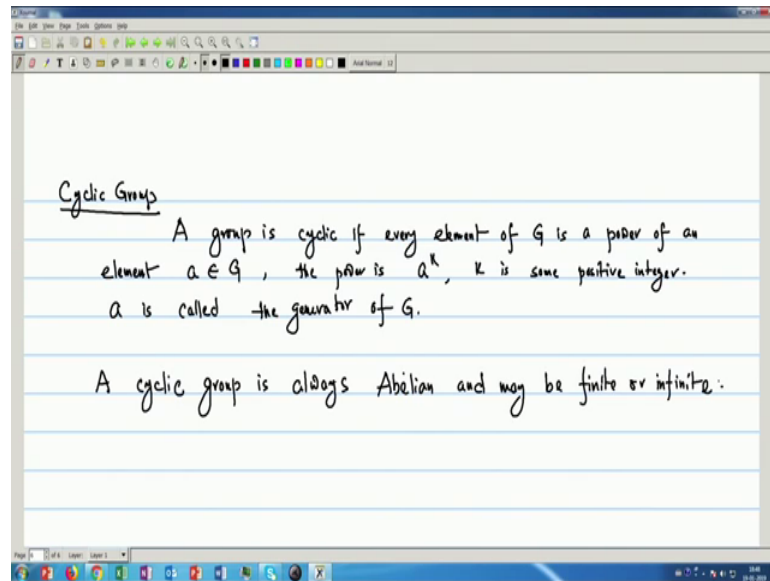 Xournal
File Edit View Page Tools Options Help
Arial Normal 12
Cyclic Group
A group is cyclic if every element of G is a power of an
element a ∈ G , the power is a^k, k is some positive integer.
a is called the generator of G.
A cyclic group is always Abelian and may be finite or infinite.
Page of 6 Layer: Layer 1